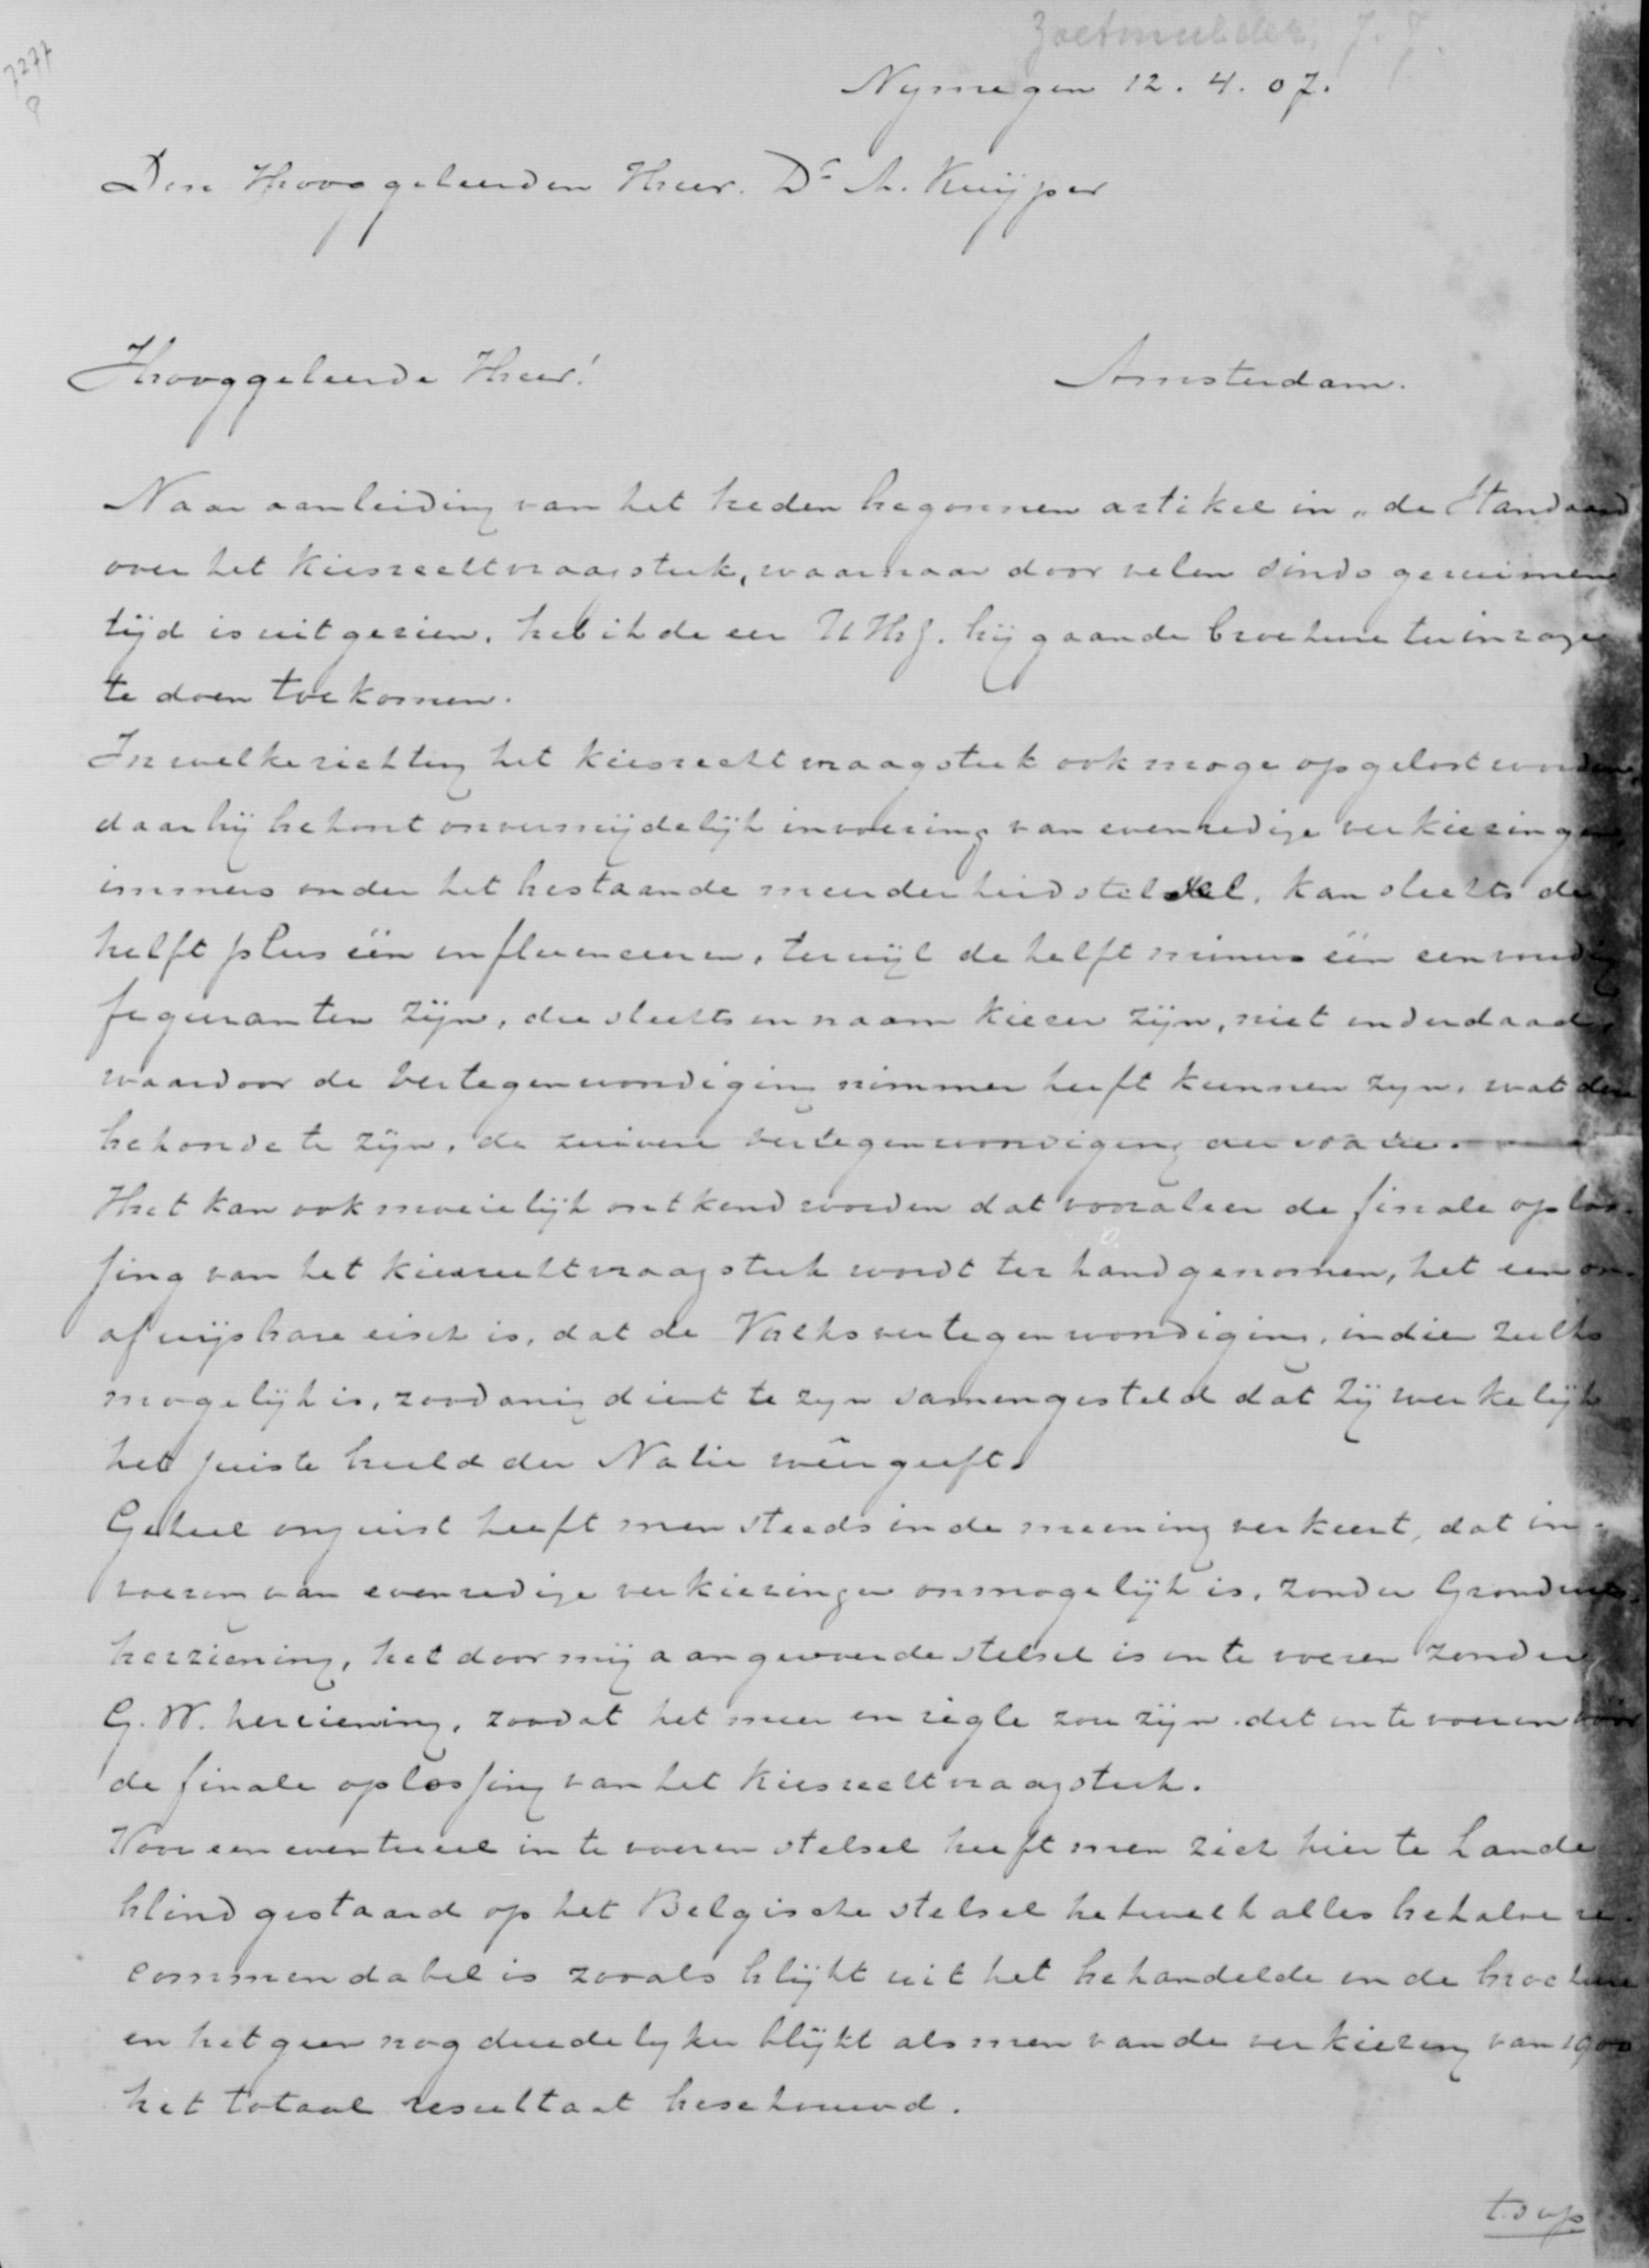 Zoetmulder, J. J.
7277
Nymegen 12.4.07.
Den Hooggeleerden Heer. Dr A. Kuijper
Amsterdam.
Hooggeleerde Heer!
Naar aanleiding van het heden begonnen artikel in „de Standaard
over het kiesrechtvraagstuk, waarnaar door velen sinds geruimen
tijd is uitgezien, heb ik de eer U HG. bijgaande brochure ter inzage
te doen toekomen.
In welke richting het kiesrechtvraagstuk ook moge opgelost worden,
daarbij behoort onvermijdelijk invoering van evenredige verkiezingen,
immers onder het bestaande meerderheidstelsel, kan slechts de
helft plus één influenceeren, terwijl de helft minus één eenvoudig
figuranten zijn, die slechts in naam kiezer zijn, niet inderdaad,
waardoor de vertegenwoordiging nimmer heeft kunnen zyn, wat deze
behoorde te zijn, de zuivere vertegenwoordiging
Het kan ook moeielijk ontkend worden dat vooraleer de finale oplos-
sing van het kiesrechtvraagstuk wordt ter hand genomen, het een on-
afwijsbare eisch is, dat de Volksvertegenwoordiging, indien zulks
mogelijk is, zoodanig dient te zyn samengesteld dat zij werkelijk
het juiste beeld der Natie weergeeft.
Geheel onjuist heeft men steeds in de meening verkeert, dat in-
voeren van evenredige verkiezingen onmogelijk is, zonder Grondwets-
herziening, het door mij aangevoerde stelsel is in te voeren zonder
G. W. herziening, zoodat het meer en règle zou zijn dit in te voeren vóór
de finale oplossing van het kiesrechtvraagstuk.
Voor een eventueel in te voeren stelsel heeft men zich hier te Lande
blind gestaard op het Belgische stelsel hetwelk alles behalve re-
commendabel is zooals blijkt uit het behandelde in de brochure
en hetgeen nog duidelyker blijkt als men van de verkiezing van 1900
het totaal resultaat beschouwd.